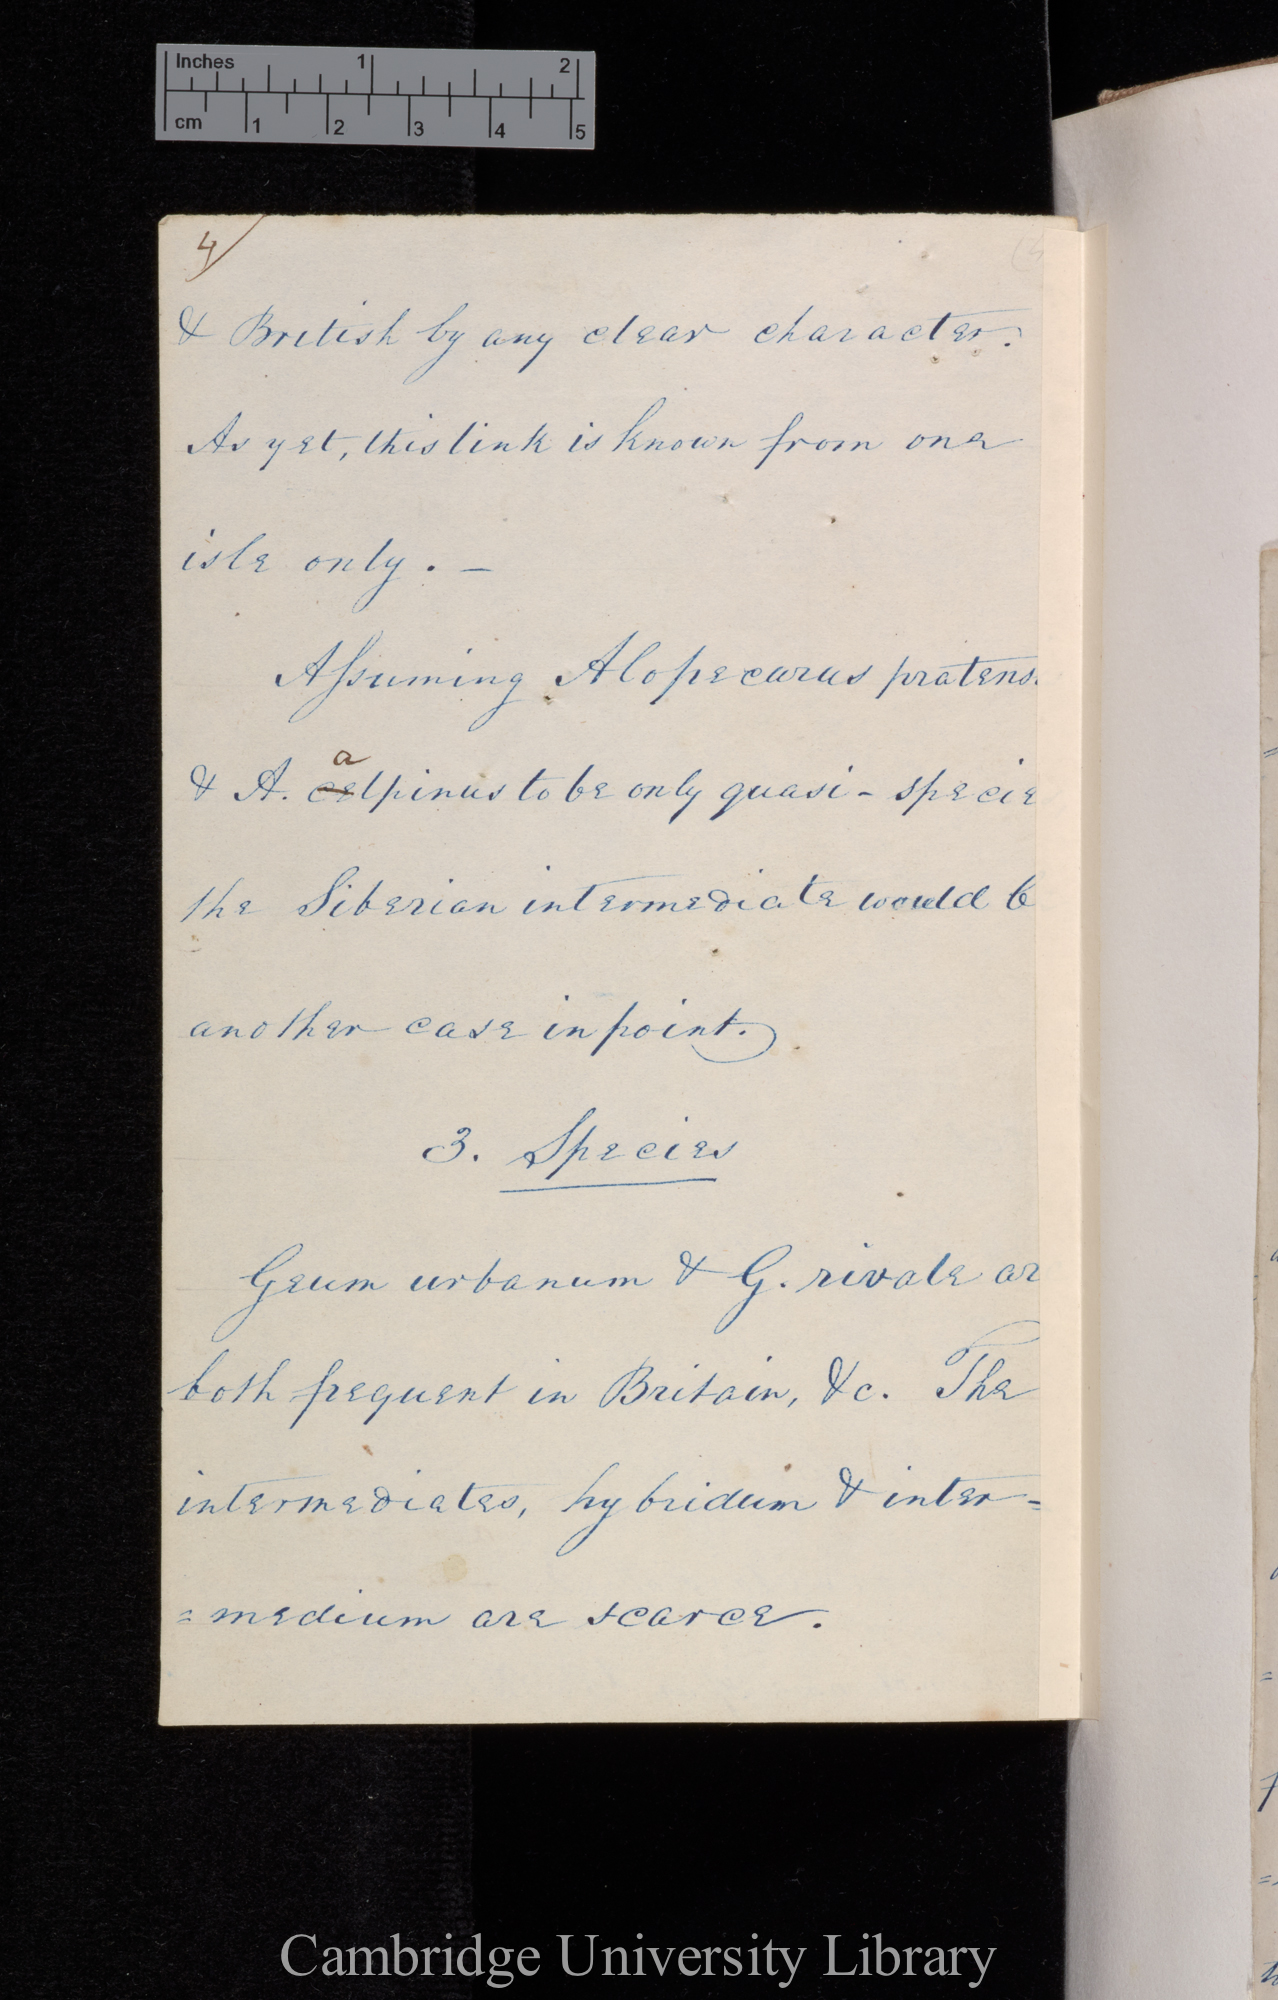 Inches 1 2
cm 1 2 3 4 5
4
& British by any clear character.
As yet, this link is known from one
isle only. —
Assuming Alopecurus pratens.
a
& A. celpinus to be only quasi - specie
the Siberian intermediate would b
another case in point.)
3. Species
Geum urbanum & G. rivale ar
both frequent in Britain, &c. The
intermediates, hybridum & inter=
=medium are scarce.
Cambridge University Library